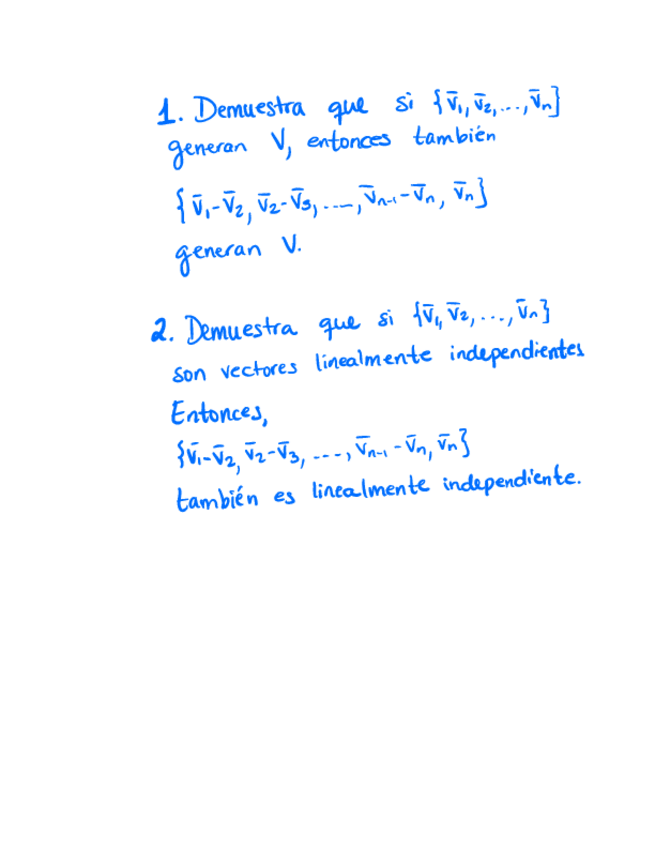 1. Demuestra que si {v̄₁, v̄₂, ..., v̄ₙ}
generan V, entonces también
{v̄₁-v̄₂, v̄₂-v̄₃, ..., v̄ₙ₋₁-v̄ₙ, v̄ₙ}
generan V.
2. Demuestra que si {v̄₁, v̄₂, ..., v̄ₙ}
son vectores linealmente independientes
Entonces,
{v̄₁-v̄₂, v̄₂-v̄₃, ..., v̄ₙ₋₁-v̄ₙ, v̄ₙ}
también es linealmente independiente.